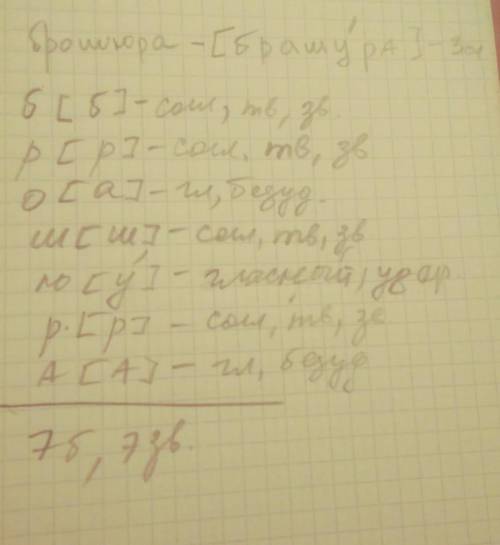 брошюра - [брашу́рА] - 3сл
б [б] - согл, тв, зв.
р [р] - согл. тв, зв
о [а] - гл, безуд.
ш [ш] - согл, тв, зв
ю [у́] - гласный, удар
р. [р] - согл, тв, зв
А [А] - гл, безуд
7б, 7зв.